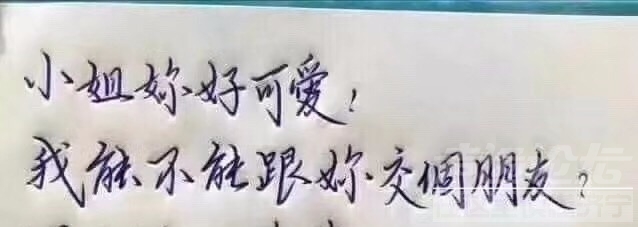 小姐妳好可愛!
我能不能跟妳交個朋友?